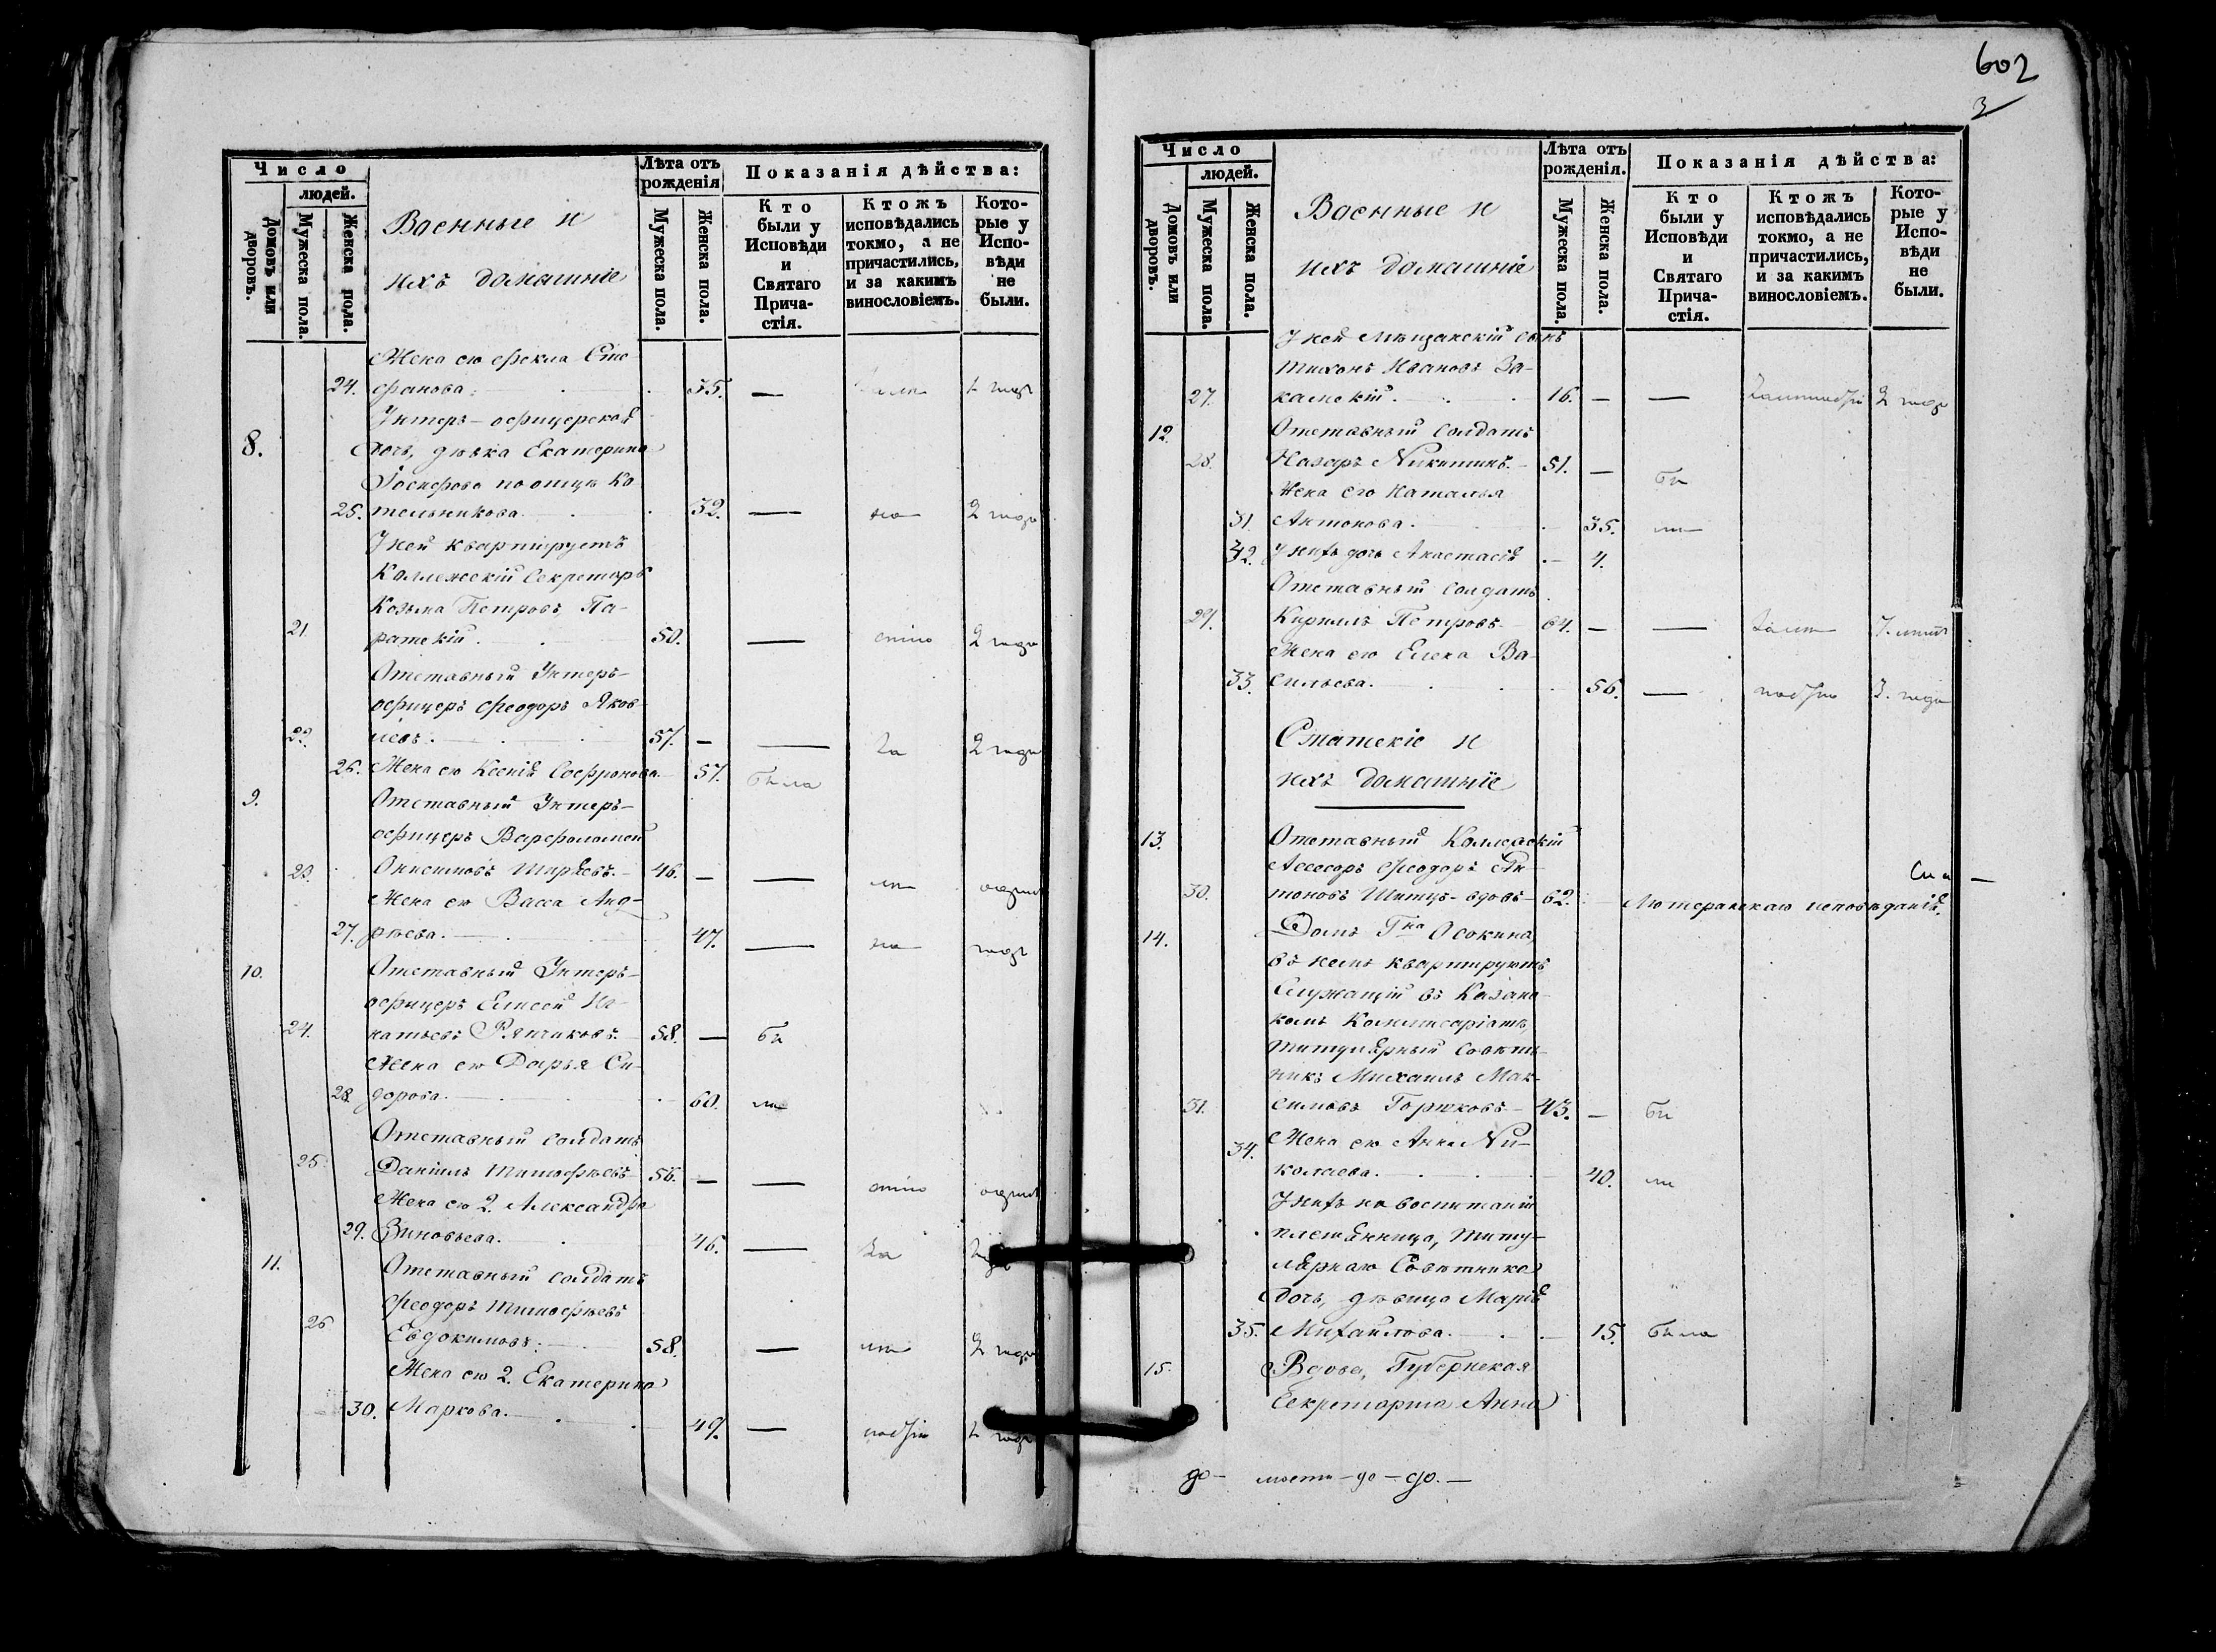 602
3
Число
людей.
Домовъ или дворовъ.
Мужеска пола.
Женска пола.
Военные и
ихъ домашніе
Лѣта отъ рожденія
Мужеска пола.
Женска пола.
Показанія дѣйства:
Кто были у Исповѣди и Святаго Прича-стія.
Ктожъ исповѣдались токмо, а не причастились, и за какимъ винословіемъ.
Кото-рые у Испо-вѣди не были.
Жена его Фекла Сте-
24. фанова. 35. — 1 годъ
Унтеръ-офицерская
8. дочь, дѣвка Екатерина
Іосифова по отцѣ Ко-
25. тельникова. 32. — 2 года
У ней квартируетъ
Коллежскій Секретарь
Козьма Петровъ Па-
21. ратскій. 50. — 2 года
Отставный Унтеръ-
офицеръ Феодоръ Яков-
22. левъ. 57. — — за 2 года
26. Жена его Ксенія Софронова. 57. была
9. Отставный Унтеръ-
офицеръ Варфоломей
23. Онисимовъ Ширяевъ. 46. — —
Жена его Васса Анд-
27. рѣева. 47. — годъ
10. Отставный Унтеръ-
офицеръ Елисей Иг-
24. натьевъ Рятчиковъ. 58. — бы
Жена его Дарья Си-
28. дорова. 60. ли
Отставный солдатъ
25. Даніилъ Тимофѣевъ 56. — —
Жена его 2. Александра
29. Зиновьева. 46. — за
11. Отставный солдатъ
Феодоръ Тимофѣевъ
26 Евдокимовъ. 58. — 2 года
Жена его 2. Екатерина
30. Маркова. 49. — 1 годъ
Число
людей.
Домовъ или дворовъ.
Мужеска пола.
Женска пола.
Военные и
ихъ домашніе
Лѣта отъ рожденія.
Мужеска пола.
Женска пола.
Показанія дѣйства:
Кто были у Исповѣди и Святаго Прича-стія.
Ктожъ исповѣдались токмо, а не причастились, и за какимъ винословіемъ.
Кото-рые у Испо-вѣди не были.
У ней Мѣщанскій сынъ
Тихонъ Ивановъ За-
27. камскій. 16. — — 2 года
12. Отставный солдатъ
28. Назаръ Никитинъ. 51. — бы
Жена его Наталья
31. Антонова. 35. ли
32. У нихъ дочь Анастасія 4.
Отставный солдатъ
29. Кириллъ Петровъ 64. — — 7. лѣтъ
Жена его Елена Ва-
33. сильева. 56. — 3. года
Статскіе и
ихъ домашніе
13. Отставный Коллежскій
Ассесоръ Феодоръ Ан-
30. тоновъ Шитцъ - вдовъ 62. Лютеранскаго исповѣданія.
14. Домъ Гна Осокина,
въ немъ квартируютъ
Служащій въ Казанс-
комъ Коммисаріатѣ,
Титулярный Совѣт-
никъ Михаилъ Мак-
31. симовъ Горюховъ 43. — бы
34. Жена его Анна Ни-
колаева. 40. ли
У нихъ на воспитаніи
племянница, Титу-
лярнаго Совѣтника
дочь, дѣвица Марія
35. Михайлова. 15. была
15. Вдова, Губернская
Секретарша Анна